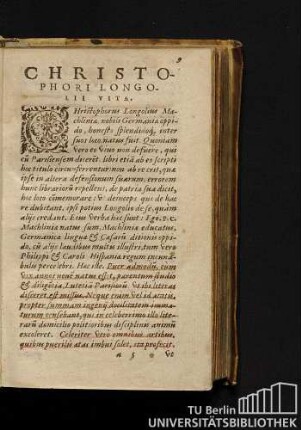 9
CHRISTO-
PHORI LONGO-
LII VITA.
CHristophorus Longolius Ma-
chlinia nobili Germaniæ oppi-
do, honesto splendidoq; inter
suos loco natus fuit. Quoniam
Vero es
cu Parisiensem diceret, libri etiā ab eo scripti
hoc titulo circumferrentur: non ab re erit, qua
ipse in altera defensionum suarum, errorem
hunc librariorū repellens, de patria sua dicit,
hoc loco commemorare: Vt deinceps qua de hac
re dubitant, ipsi potius Longolio de se, quàm
alijs credant. Eius Verba hæc sunt: Ego, P. C.
Machlinia natus sum, Machlinia educatus,
Germanicæ linguæ & Cæsarū ditionis oppi-
do, cū alijs laudibus multis illustri, tum Vero
Philippi & Caroli Hispaniæ regum incuna-
bulis percelebri. Hæc ille. Puer admodū, cum
annos natus esset, parentum studio
& diligentia, Lutetiā Parisiorū, Vt ibi literas
disceret est missus. Neque enim Vel
propter summam ingenij docilitatem imma-
turum censebant, qui in celeberrimo illo litera-
rū domicilio politioribus disciplinis animū
excoleret. Celeriter Vero omnibus artibus,
quibus puerilis ætas imbui solet, ita profecit,
a 5 Vt
TU Berlin
UNIVERSITÄTSBIBLIOTHEK